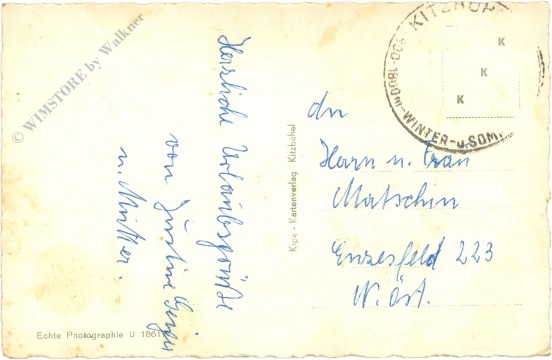 © WIMSTORE by Walkner
Herzliche Urlaubsgrüße
von Justine
u. Mutter.
Echte Photographie U 1861
Kipa - Kartenverlag Kitzbühel
KITZBÜH
800-1800m-WINTER-u.SOM
K
K
K
An
Herrn u. Frau
Matschin
Enzesfeld 223
N. Öst.